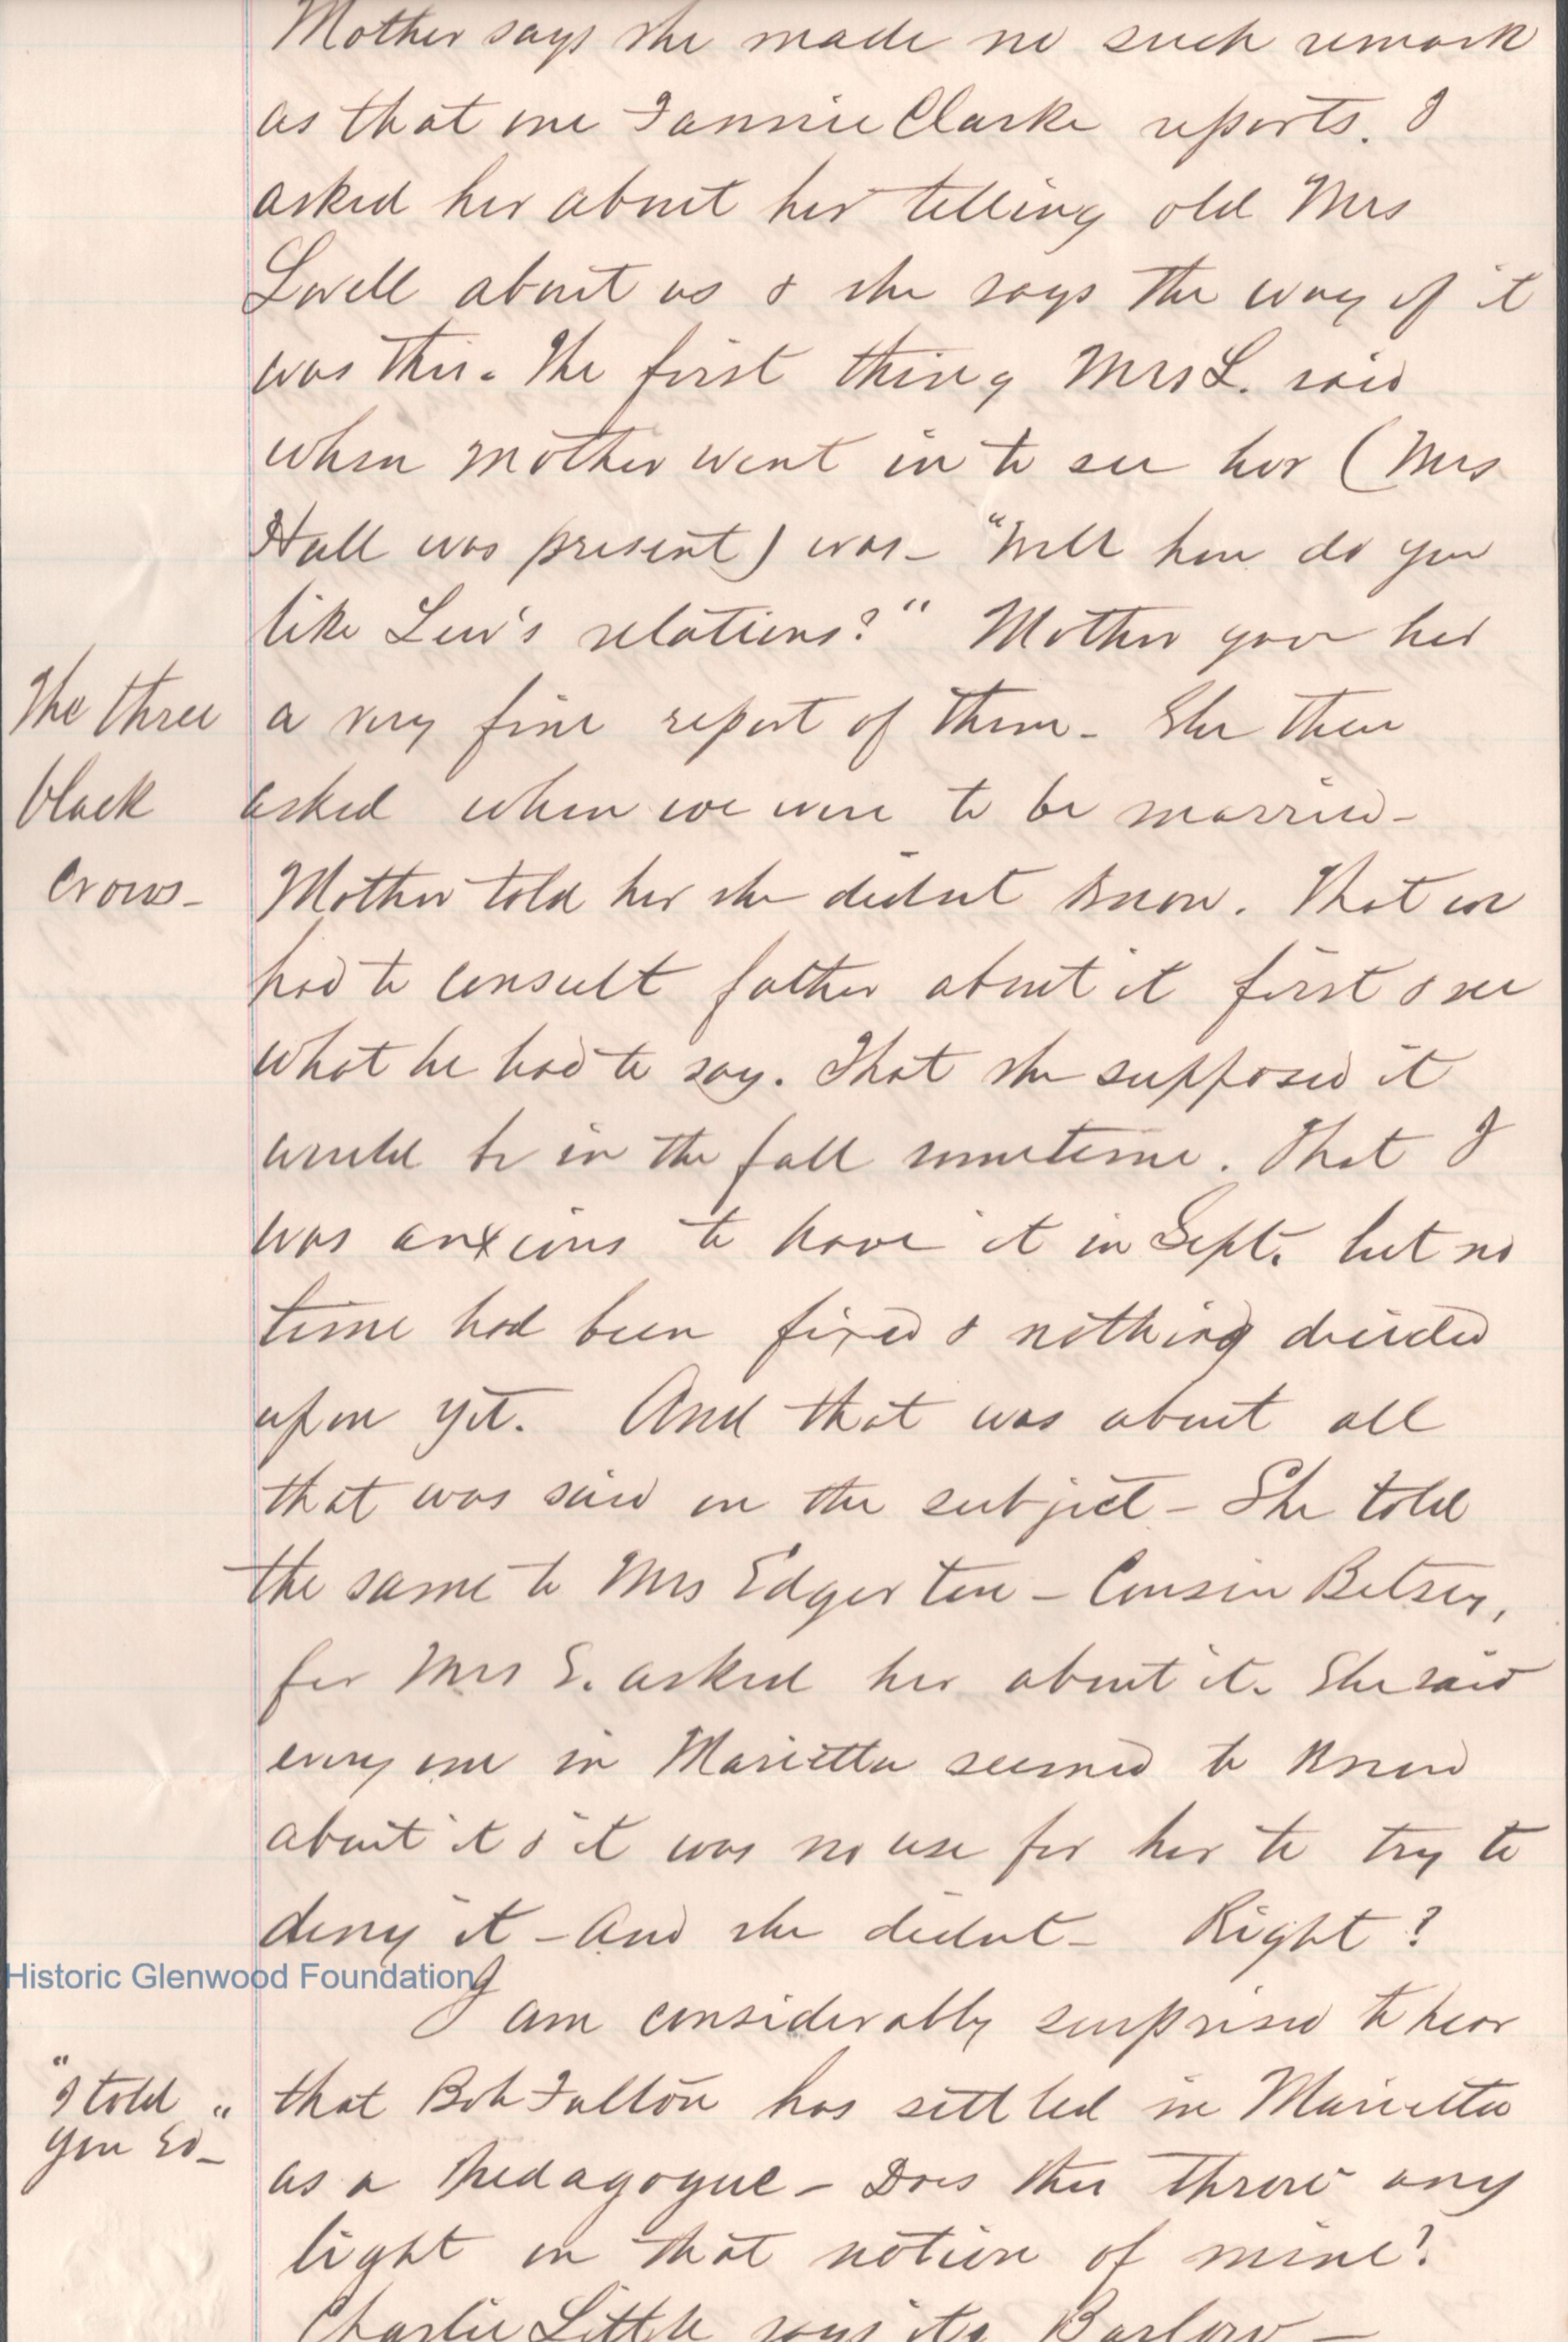 Mother says she made no such remark
as that one Fannie Clarke reports. I
asked her about her telling old Mrs
Lovell about us & she says the way of it
was this. The first thing Mrs L. said
when mother went in to see her (Mrs
Hall was present) was - "Well how do you
like Lew's relations?" Mother gave her
The three
black
Crows -
a very fine report of them - She then
asked when we were to be married -
Mother told her she didnt know. That we
had to consult father about it first & see
what he had to say. That she supposed it
would be in the fall sometime. That I
was anxious to have it in Sept. but no
time had been fixed & nothing decided
upon yet. And that was about all
that was said on the subject - She told
the same to Mrs Edgerton - Cousin Betsey,
for Mrs E. asked her about it. She said
every one in Marietta seemed to know
about it & it was no use for her to try to
deny it - And she didnt - Right?
Historic Glenwood Foundation
I am considerably surprised to hear
"I told
you so - "
that Bob Fulton has settled in Marietta
as a Pedagogue - Does this throw any
light on that notion of mine?
Charlie Little says its Barlow -